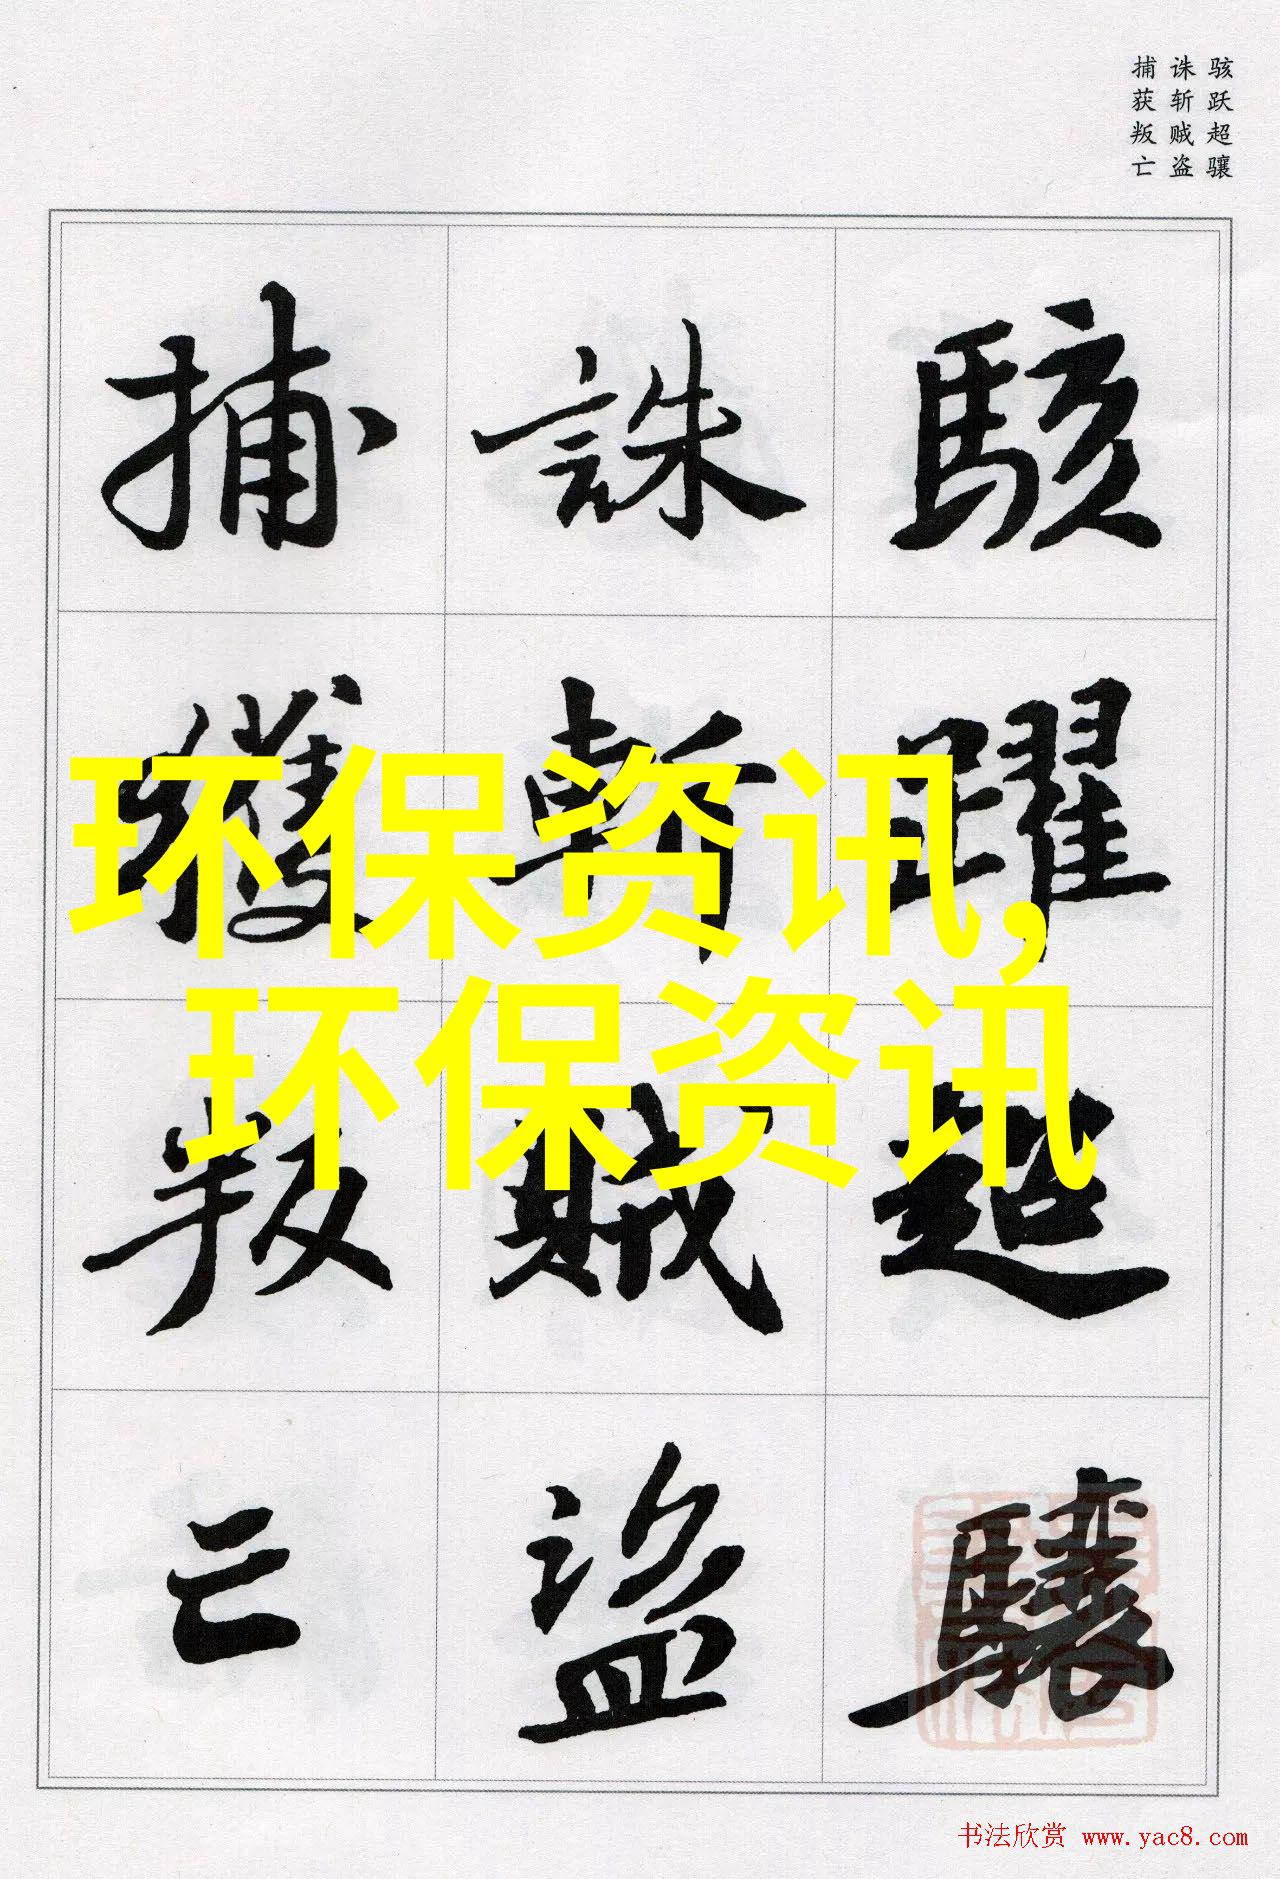 骇跃超骧
诛斩贼盗
捕获叛亡
駭躍超驤
誅斬賊盜
捕獲叛亡
环保资讯,
环保资讯
书法欣赏 www.yac8.com